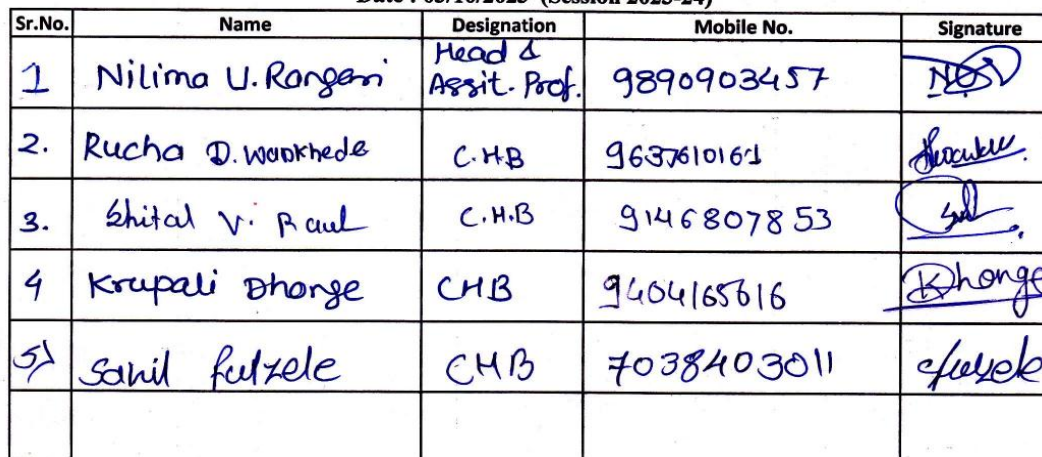 Date : 05/10/2023 (Session 2023-24)
Sr.No. Name Designation Mobile No. Signature
1 Nilima U. Rangari Head & Assit. Prof. 9890903457
2. Rucha D. Wankhede C.H.B 9637610161
3. Shital V. Raul C.H.B 9146807853
4 Krupali Dhonge CHB 9404165616 KDhonge
5) Sanil fulzele CHB 7038403011 fulzele